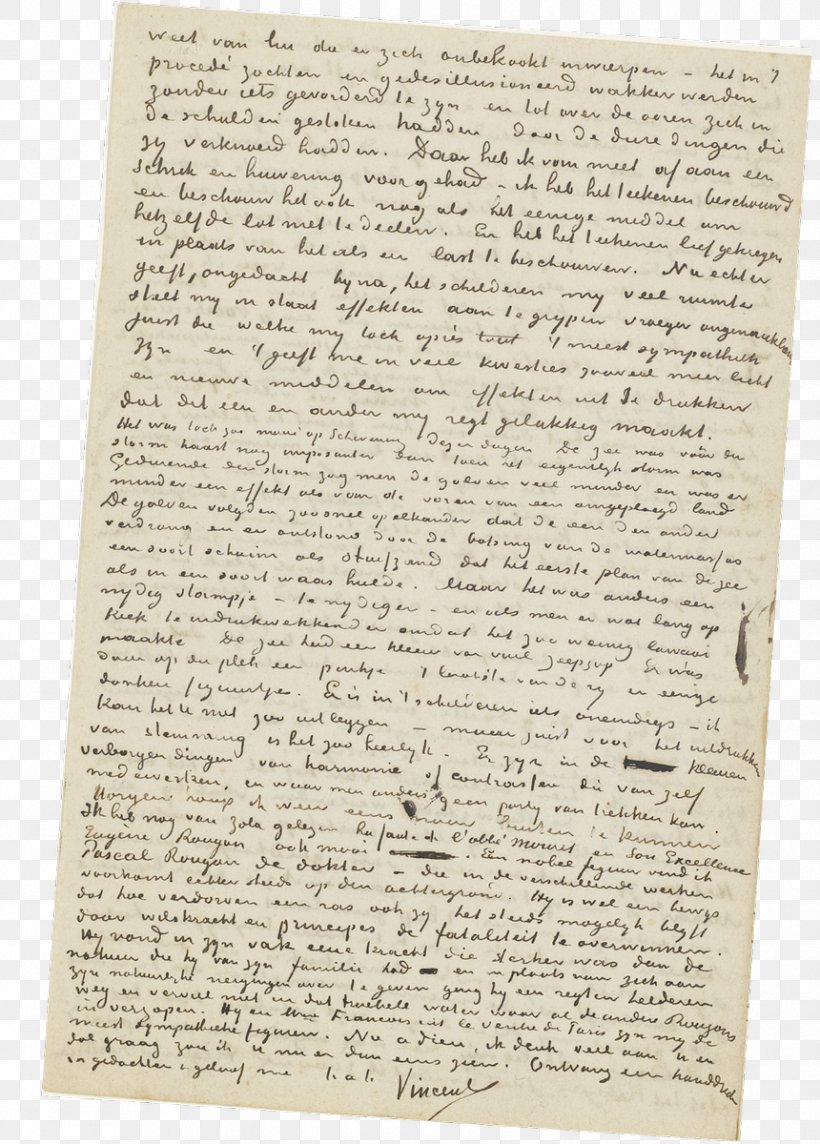 weet van hu die er zich onbekookt inwierpen – het in 't
procedé zochten en gedesillusioneerd wakker werden
zonder iets gevorderd te zijn en tot over de ooren zich in
de schulden gestoken hadden door de dure dingen die
zij verknoeid hadden. Daar heb ik van meet af aan een
schrik en huivering voor gehad – ik heb het teekenen beschouwd
en beschouw het ook nog als het eenige middel om
hetzelfde lot niet te deelen. En heb het teekenen lief gekregen
in plaats van het als een last te beschouwen. Nu echter
geeft, ongedacht bijna, het schilderen mij veel ruimte
stelt mij in staat effekten aan te grijpen vroeger ongenaakbaar
juist die welke mij toch après tout 't meest sympathiek
zijn en 't geeft me in veel kwesties zooveel meer licht
en nieuwe middelen om effekten uit te drukken
dat dit een en ander mij regt gelukkig maakt.
Het was toch zoo mooi op Schevening dezer dagen. De zee was vóór den
storm haast nog imposanter dan toen het eigentlijk storm was
Gedurende den storm zag men de golven veel minder en was er
minder een effekt als van de voren van een omgeploegd land
De golven volgden zoo snel op elkander dat de een den ander
verdrong en er ontstond door de botsing van de watermassas
een soort schuim als stuifzand dat het eerste plan van de zee
als in een soort waas hulde. Maar het was anders een
nijdig stormpje – te nijdiger – en als men er wat lang op
keek te indrukwekkender omdat het zoo weinig lawaai
maakte De zee had een kleur van vuil zeepsop Er was
daar op die plek een pinkje 't laatste van de rij en eenige
donkere figuurtjes. Er is in 't schilderen iets oneindigs – ik
kan het U niet zoo uitleggen – maar juist voor het uitdrukken
van stemming is het zoo heerlijk. Er zijn in de kleuren
verborgen dingen van harmonie of contrasten die van zelf
medewerken, en waar men anders geen partij van trekken kan.
Morgen hoop ik weer eens naar buiten te kunnen
Ik heb nog van Zola gelezen La faute de l'abbé Mouret en Son Excellence
Eugène Rougon ook mooi. Een nobel figuur vind ik
Pascal Rougon de dokter – die in de verschillende werken
voorkomt echter steeds op den achtergrond. Hij is wel een bewijs
dat hoe verdorven een ras ook zij het steeds mogelijk blijft
door wilskracht en principes de fataliteit te overwinnen.
Hij vond in zijn vak eene kracht die sterker was dan de
natuur die hij van zijn familie had – en in plaats van zich aan
zijn natuurlijke neigingen over te geven ging hij een regten helderen
weg en verviel niet in dat troebele water waar al de andere Rougons
in verzopen. Hij en Mme François uit le ventre de Paris zijn mij de
meest sympathieke figuren. Nu adieu, ik denk veel aan U en
dol graag zou ik u nu en dan eens zien. Ontvang een handdruk
in gedachten & geloof me t. à t. Vincent